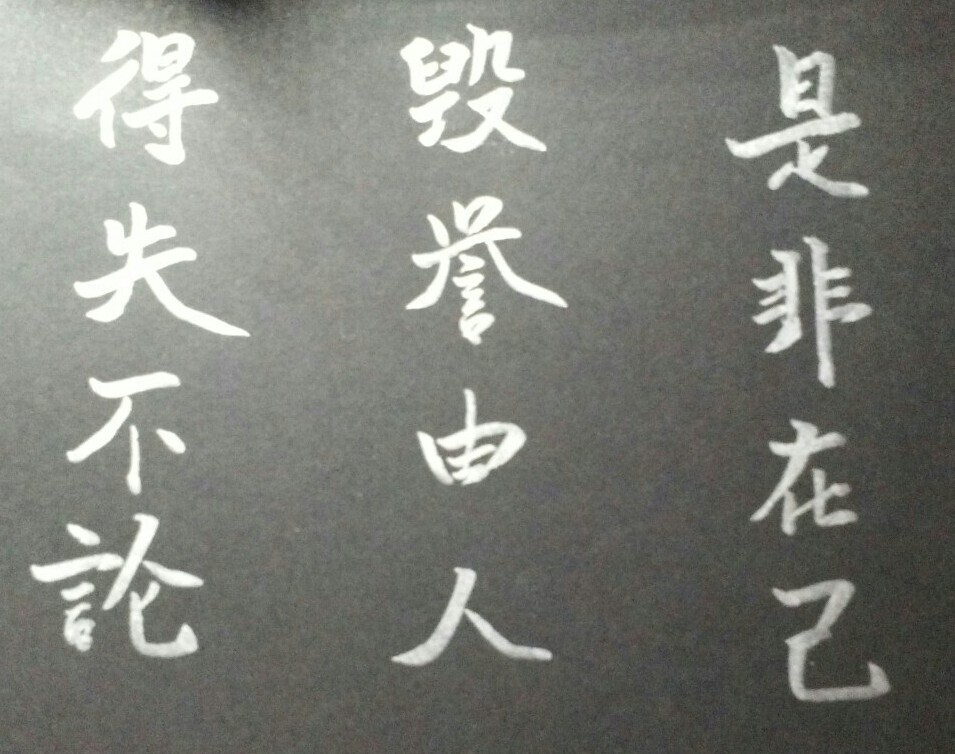 是非在己
毁誉由人
得失不論